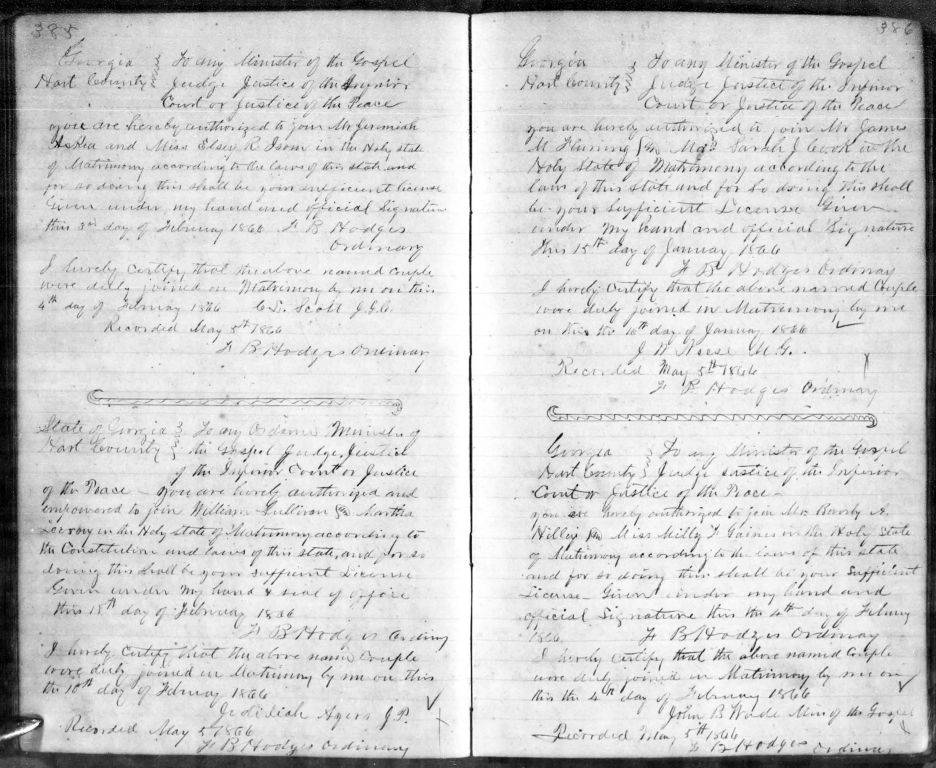 385
Georgia To any Minister of the Gospel
Hart County Judge Justice of the Inferior
Court or Justice of the Peace
you are hereby authorized to join Mr Jeremiah
and Miss Elsey R Isom in the Holy state
of Matrimony according to the laws of this state and
for so doing this shall be your sufficient license
Given under my hand and official Signature
this 3rd day of February 1866 F B Hodges
Ordinary
I hereby Certify that the above named Couple
were duly joined in Matrimony by me on this
4th day of February 1866 C. S. Scott J.I.C.
Recorded May 5th 1866
F B Hodges Ordinary
State of Georgia To any Minister of
Hart County the Gospel Judge, Justice
of the Inferior Court or Justice
of the Peace - you are hereby authorized and
empowered to join William Gullivan & Martha
in the Holy state of Matrimony according to
the Constitution and laws of this state, and for so
doing this shall be your sufficient License
Given under my hand & seal of office
this 15th day of February 1866
F B Hodges Ordinary
I hereby Certify that the above name Couple
were duly joined in Matrimony by me on this
the day of February 1866
Jedidiah Ayers J.P.
Recorded May 5 1866
F B Hodges Ordinary
386
Georgia To any Minister of the Gospel
Hart County Judge Justice of the Inferior
Court or Justice of the Peace
you are hereby authorized to join Mr James
M Fleming & Miss Sarah J Cook in the
Holy State of Matrimony according to the
laws of this state and for so doing this shall
be your sufficient License Given
under my hand and official Signature
this 15th day of January 1866
F B Hodges Ordinary
I hereby Certify that the above named Couple
were duly joined in Matrimony by me
on this the 16th day of January 1866
J W Reese M.G.
Recorded May 5th 1866
F B Hodges Ordinary
Georgia To any Minister of the Gospel
Hart County Judge Justice of the Inferior
Court or Justice of the Peace -
you are hereby authorized to join Mr. Bardy A.
Hilley & Miss Milly F Gaines in the Holy State
of Matrimony according to the laws of this State
and for so doing this shall be your Sufficient
License - Given under my hand and
official Signature this the 4th day of February
1866 F B Hodges Ordinary
I hereby Certify that the above named Couple
were duly joined in Matrimony by me on
this the 4th day of February 1866
John B Wade Min of the Gospel
Recorded May 5th 1866
F B Hodges Ordinary